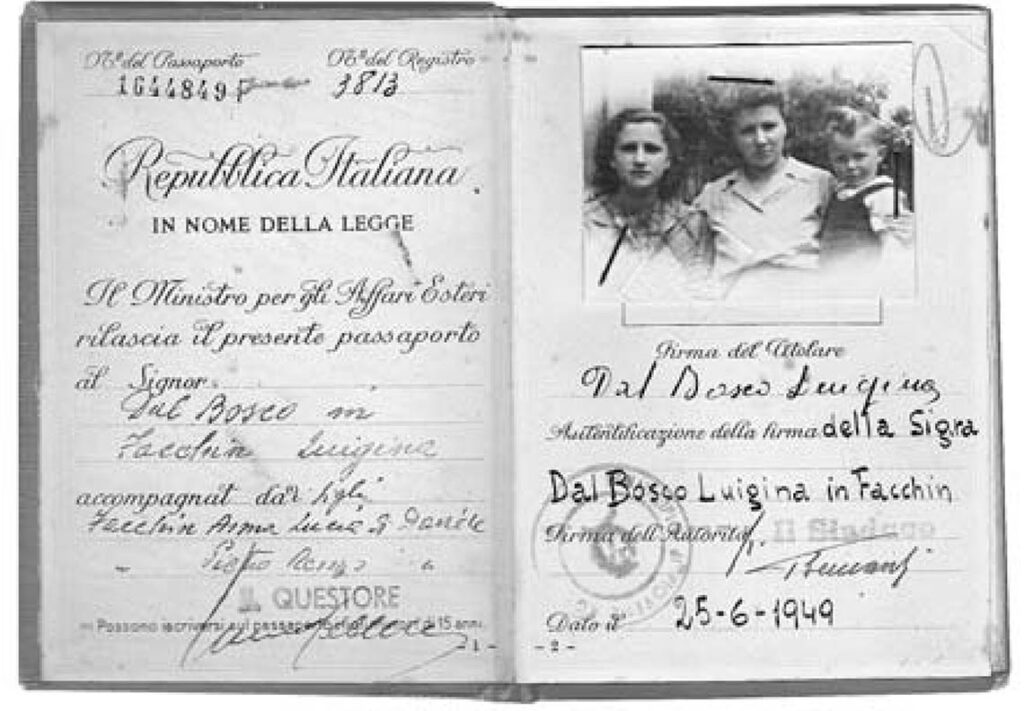 N.º del Passaporto
1644849 P
N.º del Registro
3813
Repubblica Italiana
IN NOME DELLA LEGGE
Il Ministro per gli Affari Esteri
rilascia il presente passaporto
al Signor
Dal Bosco in
Facchin Luigina
accompagnat dai figli
Facchin Anna Lucia di Daniele
" Pietro Renzo "
IL QUESTORE
Possono iscriversi sul passaporto i figli minori di 15 anni
- 1 -
Firma del titolare
Dal Bosco Luigina
Autentificazione della firma della Sigra
Dal Bosco Luigina in Facchin
Firma dell'Autorità
Il Sindaco
Dato il 25-6-1949
- 2 -